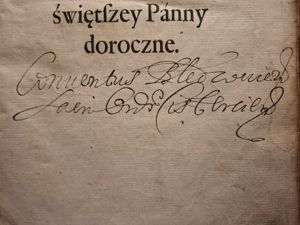 świętſzey Pánny
doroczne.
Conventus Bledzovien
Sacri Ord: Cisterciens